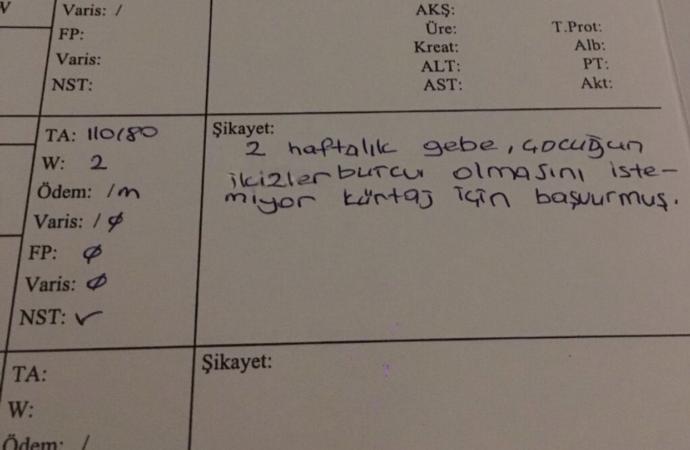 V
Varis: /
FP:
Varis:
NST:
AKŞ:
Üre:
Kreat:
ALT:
AST:
T.Prot:
Alb:
PT:
Akt:
TA: 110/80
W: 2
Ödem: /m
Varis: / ø
FP: ø
Varis: ø
NST: ✓
Şikayet:
2 haftalık gebe, çocuğun
ikizler burcu olmasını iste-
miyor kürtaj için başvurmuş.
TA:
W:
Ödem: /
Şikayet: